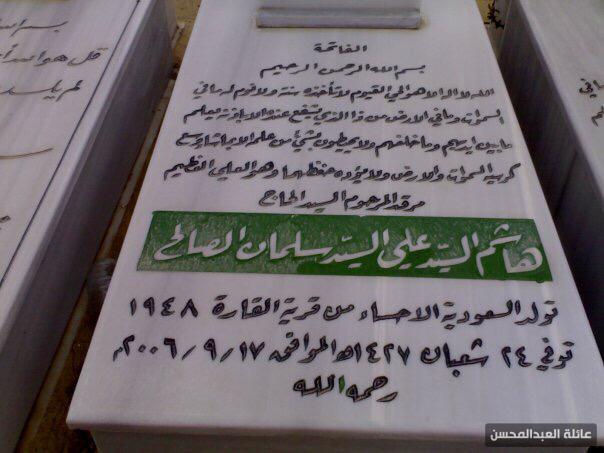 الفاتحة
بسم الله الرحمن الرحيم
الله لا اله الا هو الحي القيوم لا تأخذه سنة ولا نوم له مافي
السموات ومافي الارض من ذا الذي يشفع عنده الا باذنه يعلم
ما بين ايديهم وما خلفهم ولا يحيطون بشيء من علمه الا بما شاء وسع
كرسيه السموات والارض ولا يؤوده حفظهما وهو العلي العظيم
مرقد المرحوم السيد الحاج
هاشم السيّد علي السيّد سلمان الصالح
تولد السعودية الاحساء من قرية القارة ١٩٤٨
توفي ٢٤ شعبان ١٤٢٧هـ الموافق ١٧-٩-٢٠٠٦م
رحمه الله
قل هو الله
لم يلد
عائلة العبدالمحسن